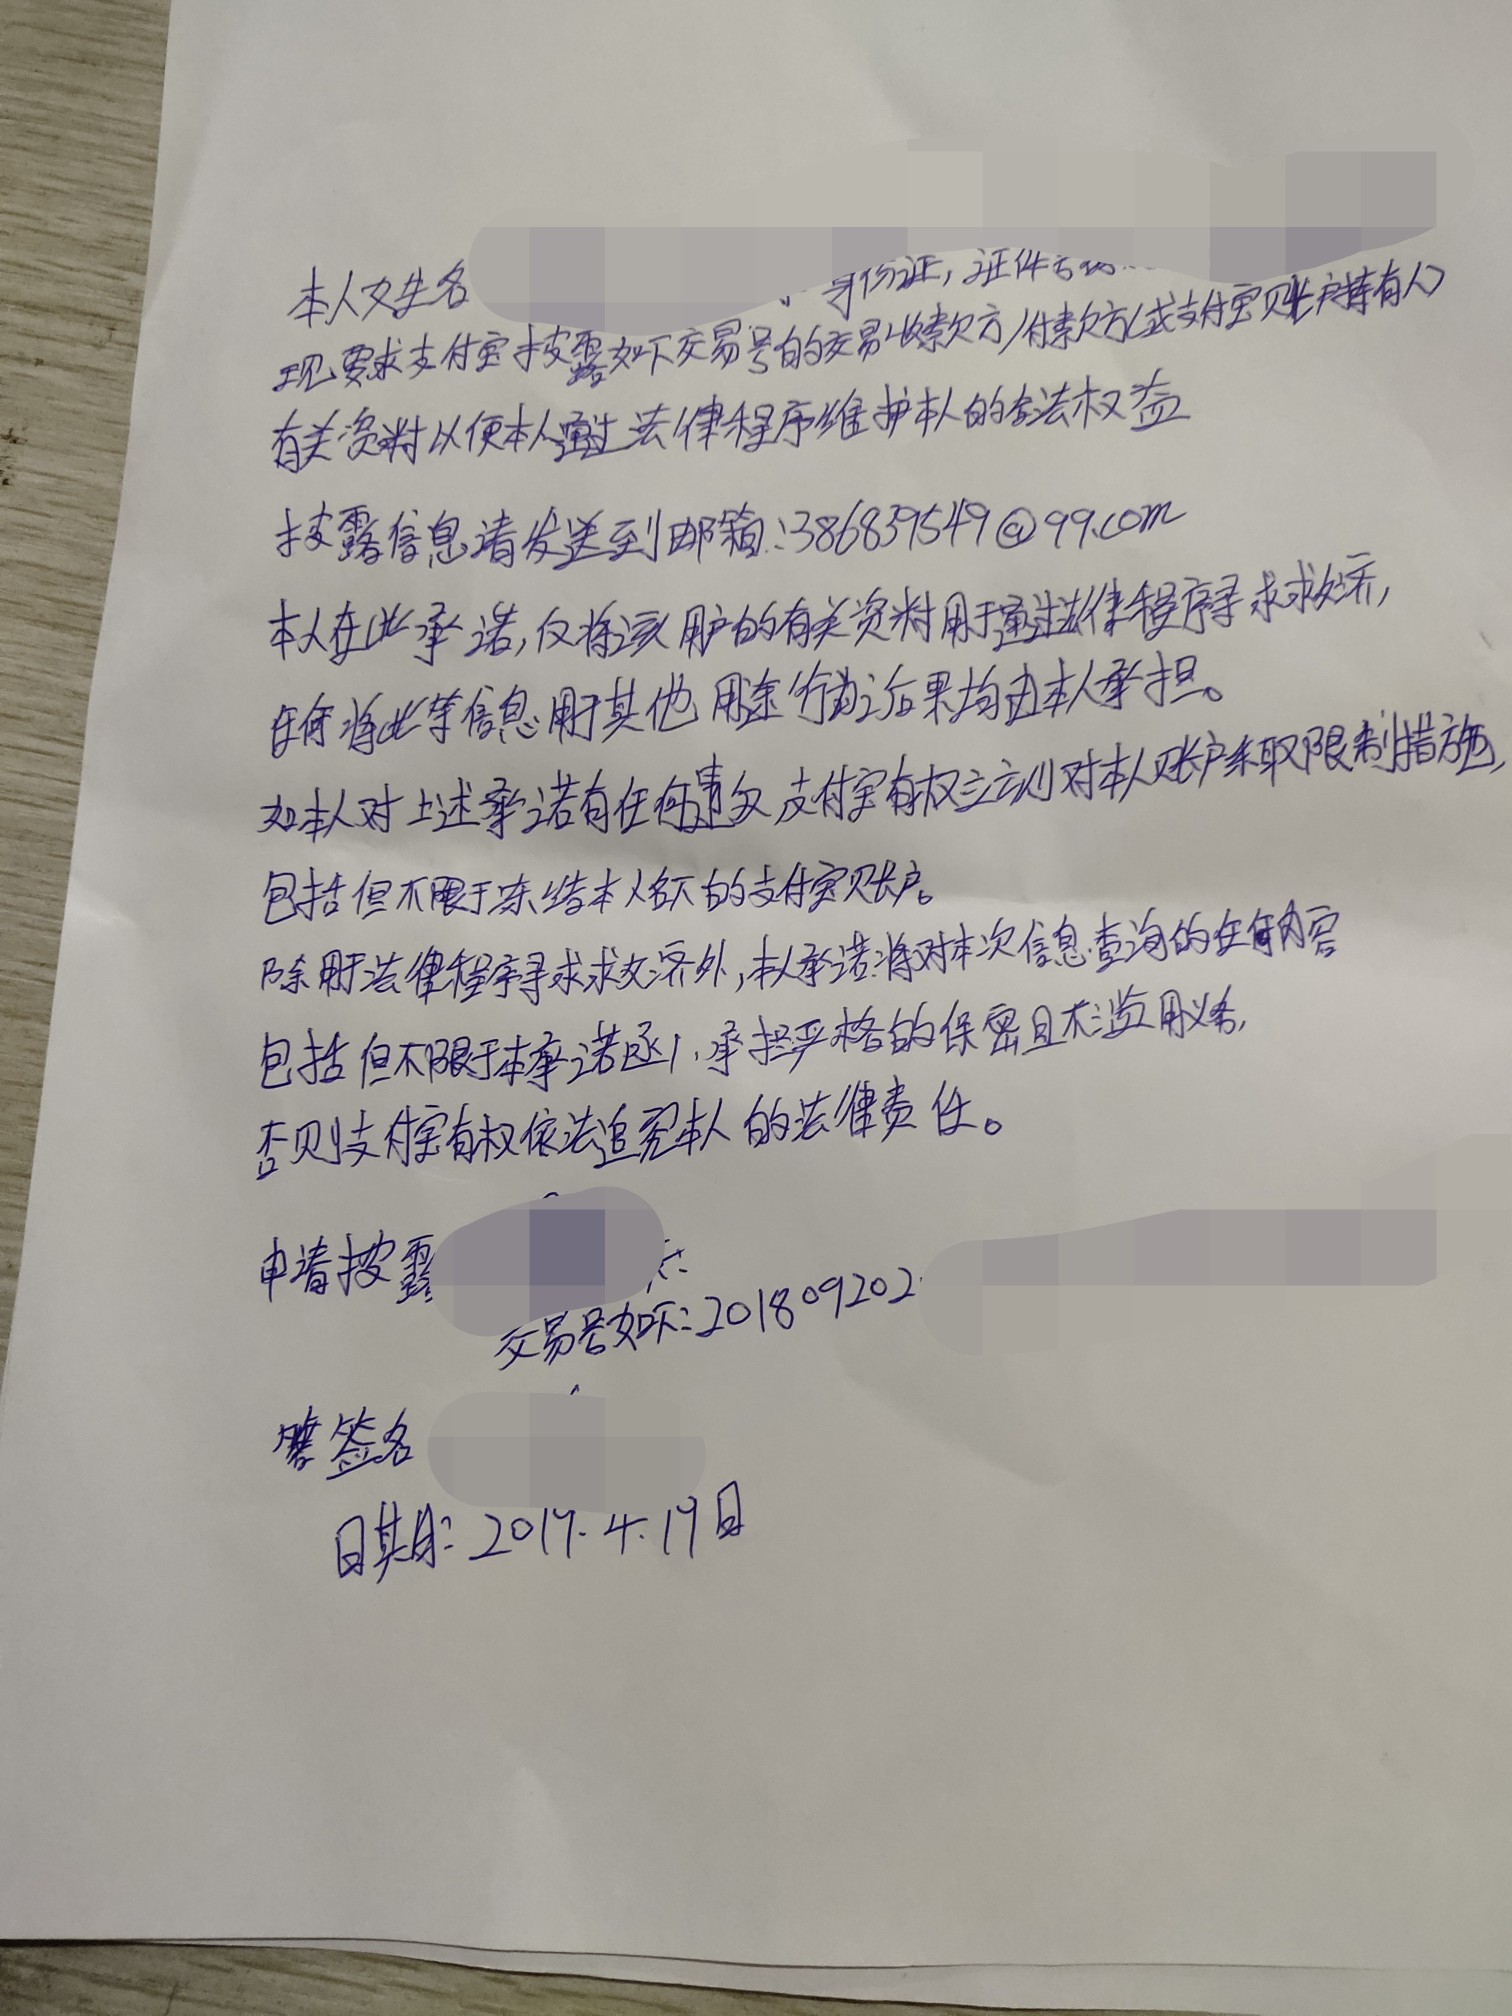 本人姓名 身份证,证件号
现要求支付宝披露如下交易号的交易收款方/付款方(或支付宝账户持有人)
有关资料以便本人通过法律程序维护本人的合法权益
披露信息请发送到邮箱:386839549@qq.com
本人在此承诺,仅将该用户的有关资料用于通过法律程序寻求救济,
任何将此等信息用于其他用途行为之后果均由本人承担。
如本人对上述承诺有任何违反,支付宝有权立刻对本人账户采取限制措施,
包括但不限于冻结本人名下的支付宝账户。
除用于法律程序寻求救济外,本人承诺将对本次信息查询的任何内容
包括但不限于本承诺函,承担严格的保密且不滥用义务,
否则支付宝有权依法追究本人的法律责任。
申请披露
交易号如下:201809202
签名
日期:2019.4.19日